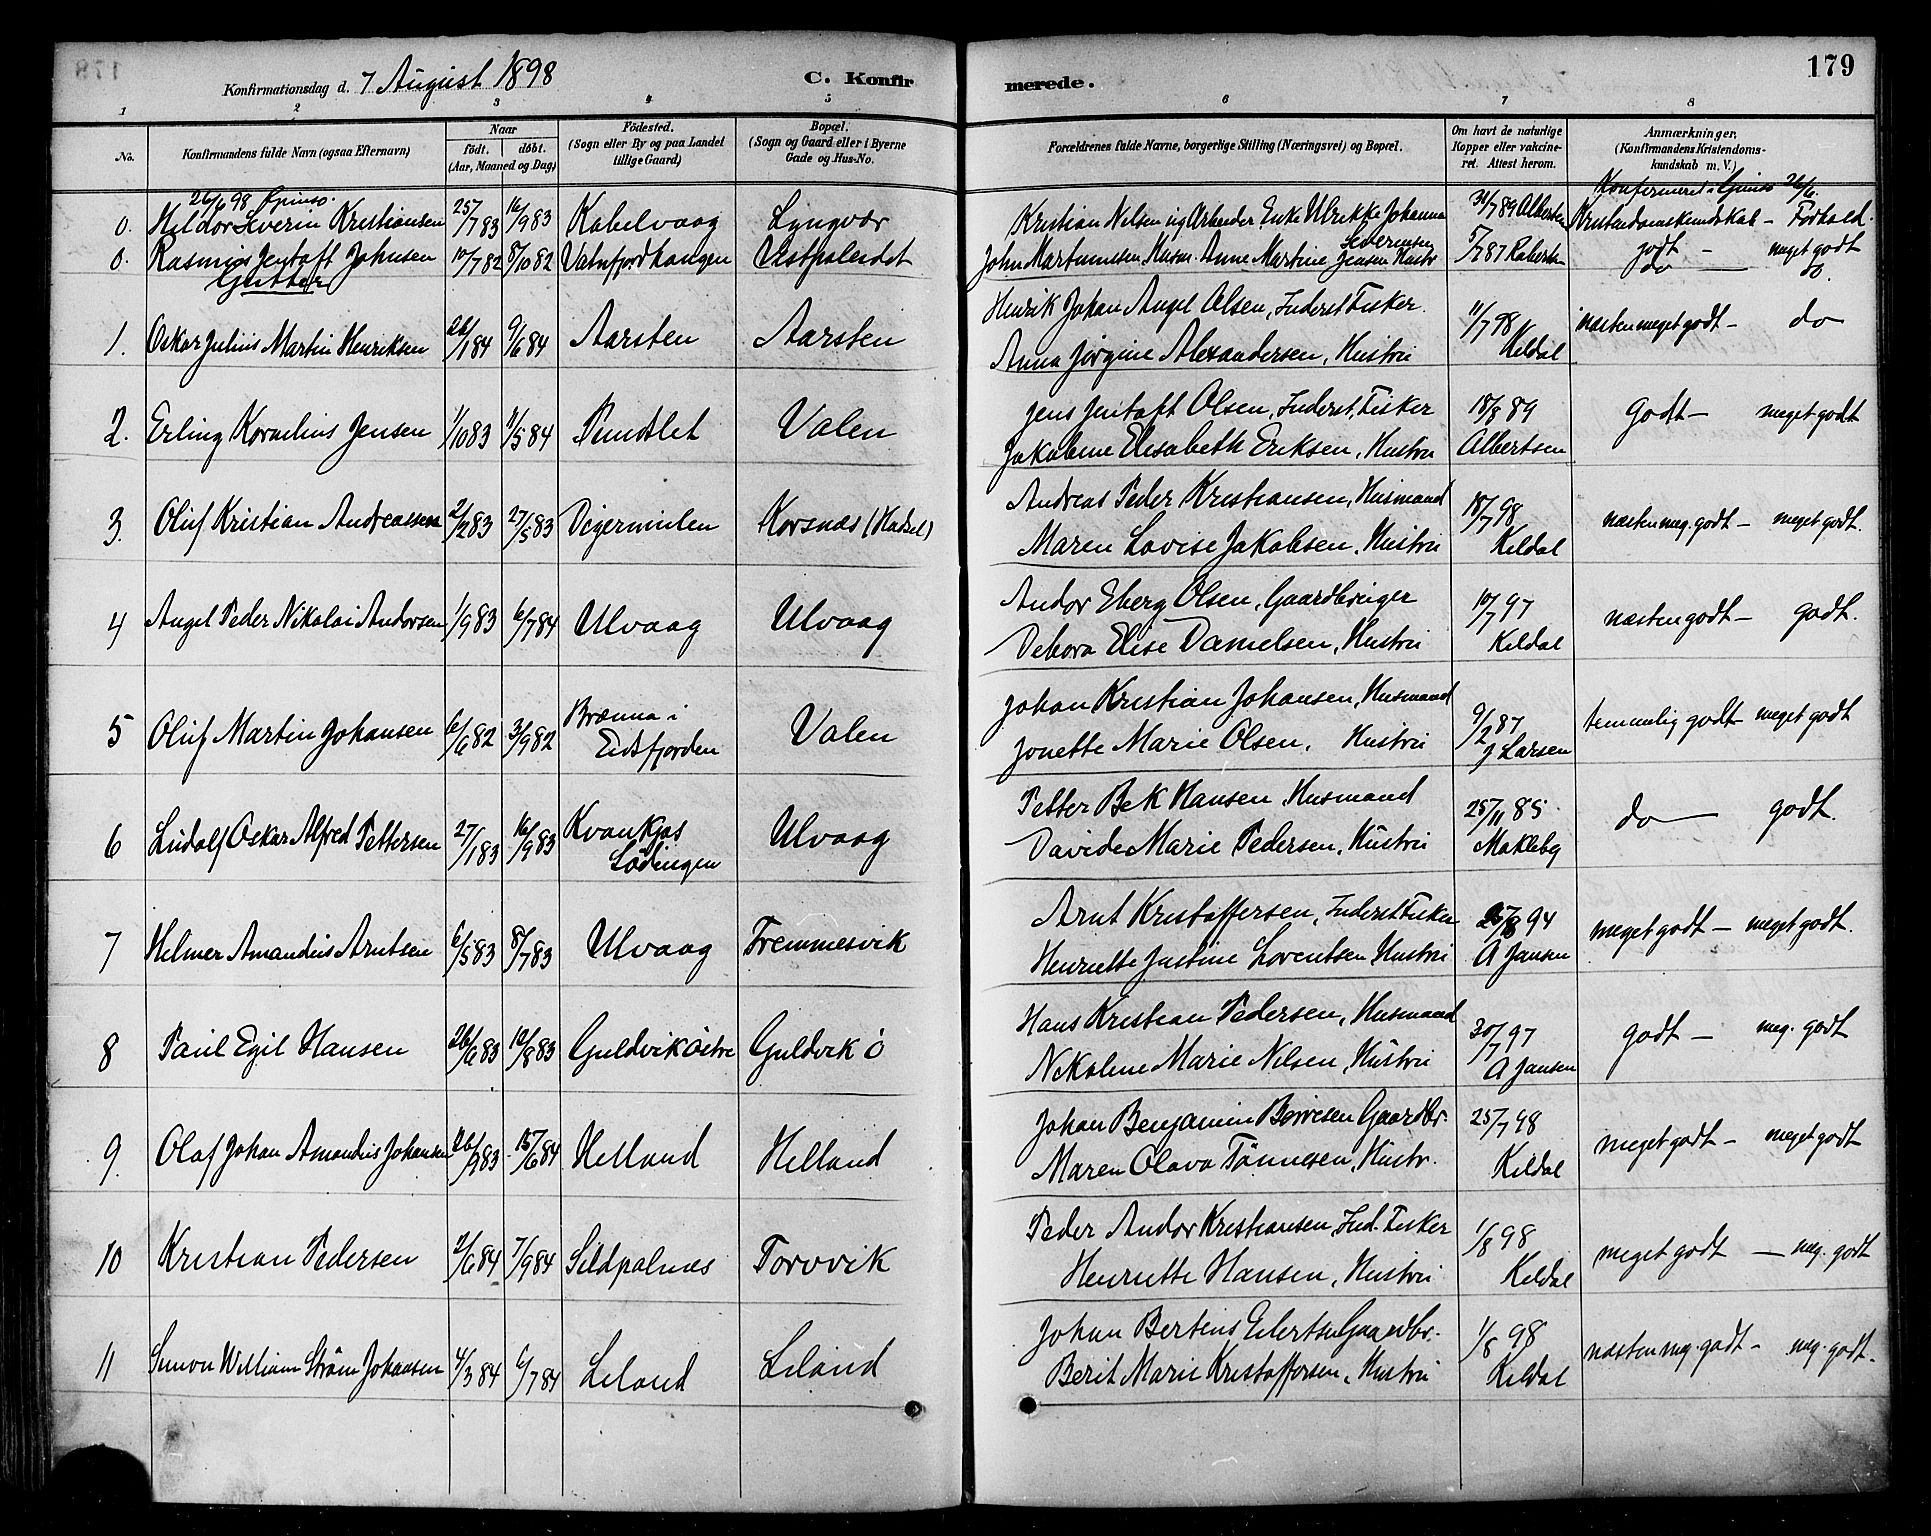 179
Konfirmationsdag d. 7 August 1898 C. Konfirmerede.
1 2 3 4 5 6 7 8
No. Konfirmandens fulde Navn (ogsaa Efternavn) Naar födt. döbt. (Aar, Maaned og Dag) Födested. (Sogn eller By og paa Landet tillige Gaard) Bopæl. (Sogn og Gaard eller i Byerne Gade og Hus-No. Forældrenes fulde Navne, borgerlige Stilling (Næringsvei) og Bopæl. Om havt de naturlige Kopper eller vakcineret. Attest herom. Anmærkninger. (Konfirmandens Kristendomskundskab m. V.)
26/6 98 Gimsø. Konfirmeret i Gimsø 26/6.
0. Hildor Severin Kristiansen 25/7 83 16/9 83 Kabelvaag Lyngvær Kristian Nilsen ug Arbeider, Enke Ulrikke Johanna Severinsen 31/7 89 Albertsen Kristendomskundskab – Forhold.
godt – meget godt
0. Rasmus Jentoft Johnsen 10/7 82 8/10 82 Vatnfjordhaugen Vestpolendet John Martinussen, Husm. Anne Martine Jensen Hustr 5/7 87 Robertsen do do.
Gutter
1. Oskar Julius Martin Henriksen 26/1 84 9/6 84 Aarsten Aarsten Henrik Johan Angel Olsen, Inderst, Fisker.
Anna Jørgine Alexandersen, Hustru 11/7 98 Kildal næsten meget godt – do
2. Erling Kornelius Jensen 1/10 83 11/5 84 Pundslet Valen Jens Jentoft Olsen, Inderst, Fisker
Jakobine Elisabeth Eriksen, Hustru 18/8 89 Albertsen Godt – meget godt
3. Oluf Kristian Andreassen 2/2 83 27/5 83 Digermulen Korsnæs (Hadsel) Andreas Peder Kristiansen, Husmand
Maren Lovise Jakobsen, Hustru 18/7 98 Kildal næsten meg. godt – meget godt.
4 Angel Peder Nikolai Andorsen 1/9 83 6/7 84 Ulvaag Ulvaag Andor Eberg Olsen, Gaardbruger
Debora Elise Danielsen, Hustru 10/7 97 Kildal næsten godt – godt.
5 Oluf Martin Johansen 6/6 82 3/9 82 Brænna i Eidsfjorden Valen Johan Kristian Johansen, Husmand
Jonette Marie Olsen, Hustru 9/2 87 J Larsen temmelig godt – meget godt
6 Ludolf Oskar Alfred Pettersen 27/1 83 16/9 83 Kvankjos Lødingen Ulvaag Petter Bek Hansen, Husmand
Davide Marie Pedersen, Hustru 25/11 85 Maklebg do – godt.
7 Helmer Amandus Arntsen 6/5 83 8/7 83 Ulvaag Tremmesvik Arnt Kristoffersen, Inderst Fisker
Henriette Justine Lorentsen, Hustru 25/8 94 A Jansen meget godt – meget godt.
8 Paul Egil Hansen 26/6 83 12/8 83 Guldvik østre Guldvik ø Hans Kristian Pedersen, Husmand
Nikoline Marie Nilsen, Hustru 30/7 97 A Jansen godt – meg. godt
9. Olaf Johan Amandus Johansen 26/9 83 15/6 84 Helland Helland Johan Benjamin Børresen Gaardbr.
Maren Olava Tønnesen, Hustr. 25/7 98 Kildal meget godt – meget godt
10 Kristian Pedersen 2/6 84 7/9 84 Sildpolnæs Torvvik Peder Andor Kristiansen, Ind. Fisker
Henriette Hansen, Hustru 1/8 98 Kildal meget godt – meg. godt
11 Simon William Strøm Johansen 4/3 84 6/7 84 Liland Liland Johan Bertius Eilertsen Gaardbr.
Berit Marie Kristoffersen, Hustru 1/8 98 Kildal næsten meg. godt – meg. godt.